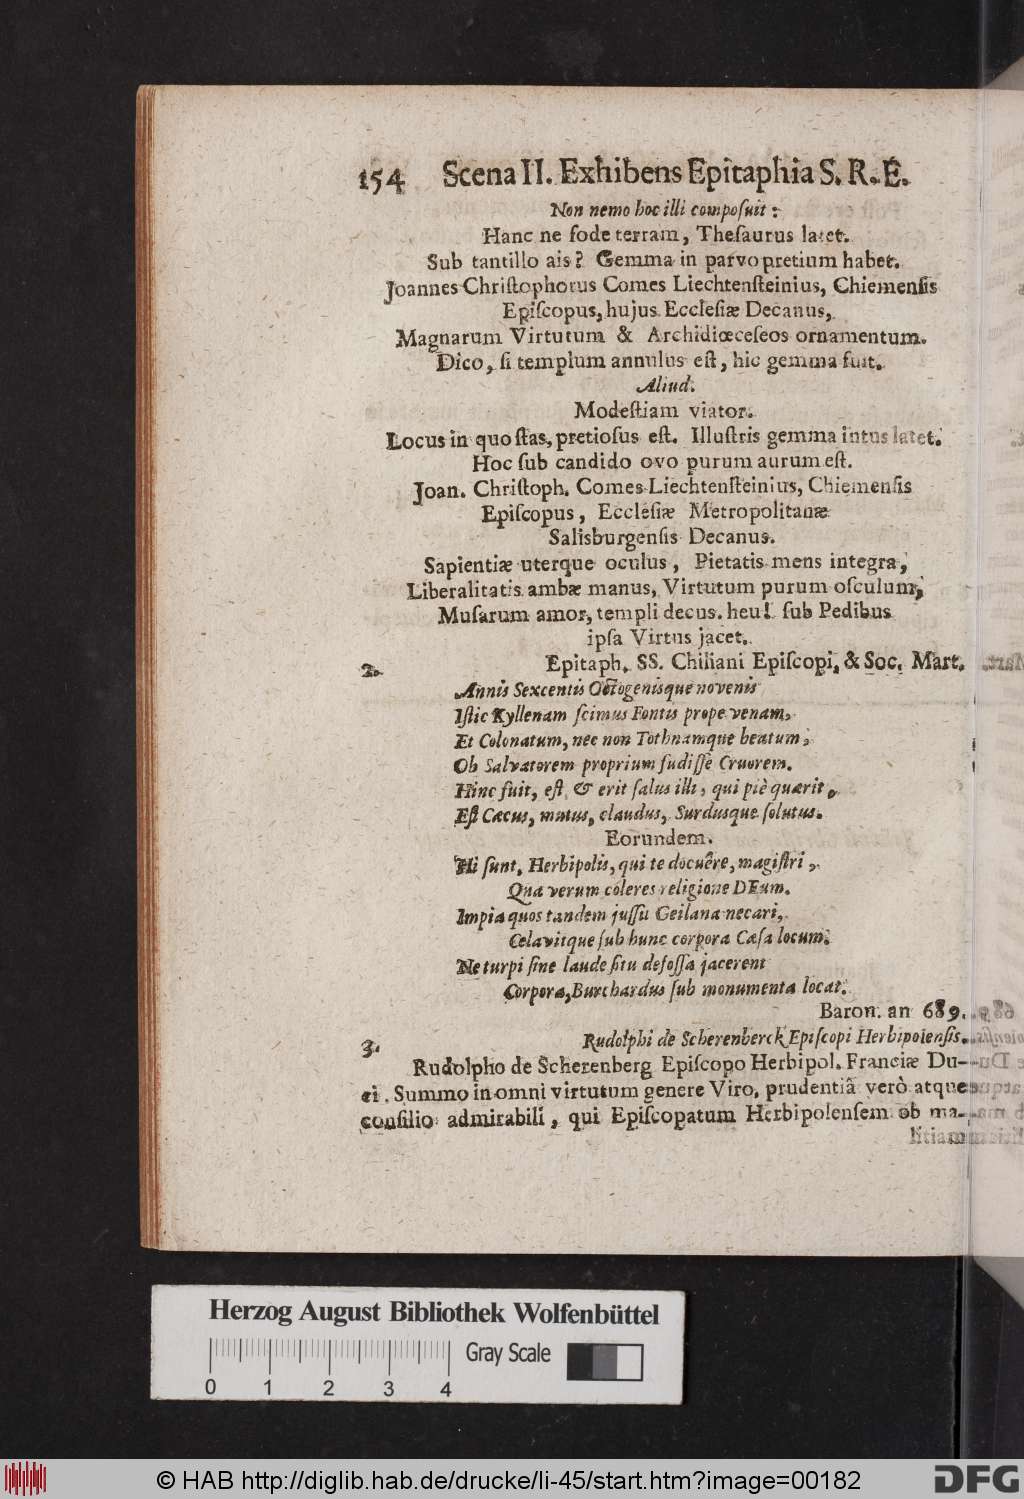 154 Scena II. Exhibens Epitaphia S. R. E.
Non nemo hoc illi compoſuit:
Hanc ne fode terram, Theſaurus latet.
Sub tantillo ais? Gemma in parvo pretium habet.
Joannes Chriſtophorus Comes Liechtenſteinius, Chiemenſis
Epiſcopus, hujus Eccleſiæ Decanus,
Magnarum Virtutum & Archidiœceſeos ornamentum.
Dico, ſi templum annulus eſt, hic gemma fuit.
Aliud.
Modeſtiam viator.
Locus in quo ſtas, pretioſus eſt. Illuſtris gemma intus latet.
Hoc ſub candido ovo purum aurum eſt.
Joan. Chriſtoph. Comes Liechtenſteinius, Chiemenſis
Epiſcopus, Eccleſiæ Metropolitanæ
Salisburgenſis Decanus.
Sapientiæ uterque oculus, Pietatis mens integra,
Liberalitatis ambæ manus, Virtutum purum oſculum,
Muſarum amor, templi decus. heu! ſub Pedibus
ipſa Virtus jacet.
2. Epitaph. SS. Chiliani Epiſcopi, & Soc. Mart.
Annis Sexcentis Octogenisque novenis
Iſtic Kyllenam ſcimus Fontis prope venam,
Et Colonatum, nec non Tothnamque beatum,
Ob Salvatorem proprium fudiſſe Cruorem.
Hinc fuit, eſt & erit ſalus illi, qui piè quærit,
Eſt Cæcus, mutus, claudus, Surdusque ſolutus.
Eorundem.
Hi ſunt, Herbipolis, qui te docuêre, magiſtri,
Qua verum coleres religione DEum.
Impia quos tandem juſſu Geilana necari,
Celavitque ſub hunc corpora Cæſa locum.
Ne turpi ſine laude ſitu defoſſa jacerent
Corpora, Burchardus ſub monumenta locat.
Baron. an 689.
3. Rudolphi de Scherenberck Epiſcopi Herbipolenſis.
Rudolpho de Scherenberg Epiſcopo Herbipol. Franciæ Du-
ci. Summo in omni virtutum genere Viro, prudentiâ verò atque
conſilio admirabili, qui Epiſcopatum Herbipolenſem ob ma-
litiam
Herzog August Bibliothek Wolfenbüttel
Gray Scale
0 1 2 3 4
© HAB http://diglib.hab.de/drucke/li-45/start.htm?image=00182
DFG